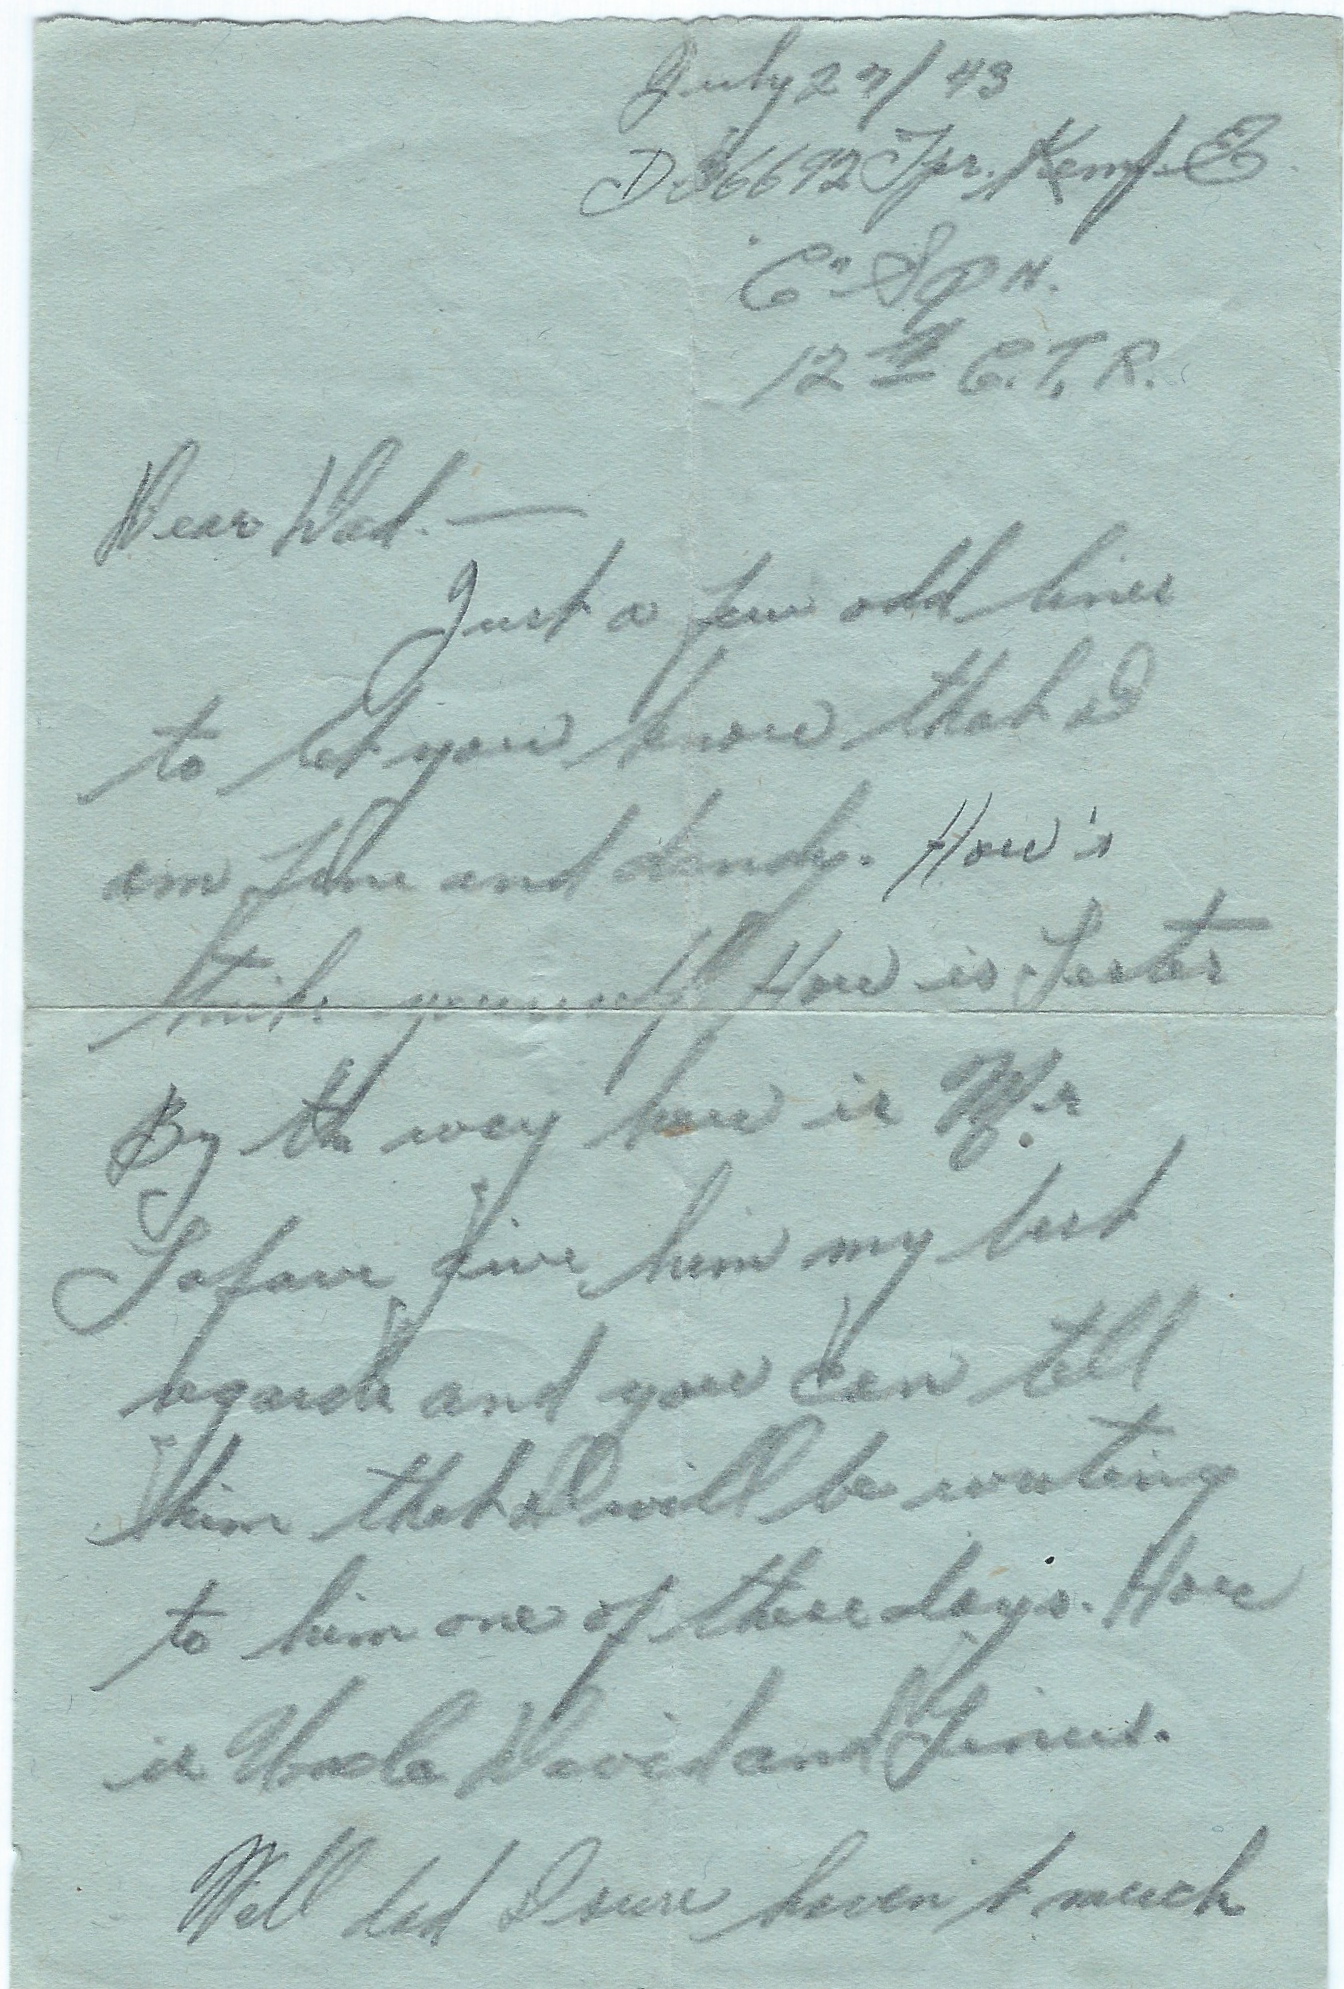 July 27/43
Tpr. Kemp. E.
"C" Sqn.
12th C.T.R.
Dear Dad. —
Just a few odd lines
to let you know that I
am fine and dandy. How's
yourself How is Lester
By the way how is Mr.
Lafave give him my best
regards and you can tell
him that I will be writing
to him one of these days. How
is Uncle David and
Well dad I sure haven't much